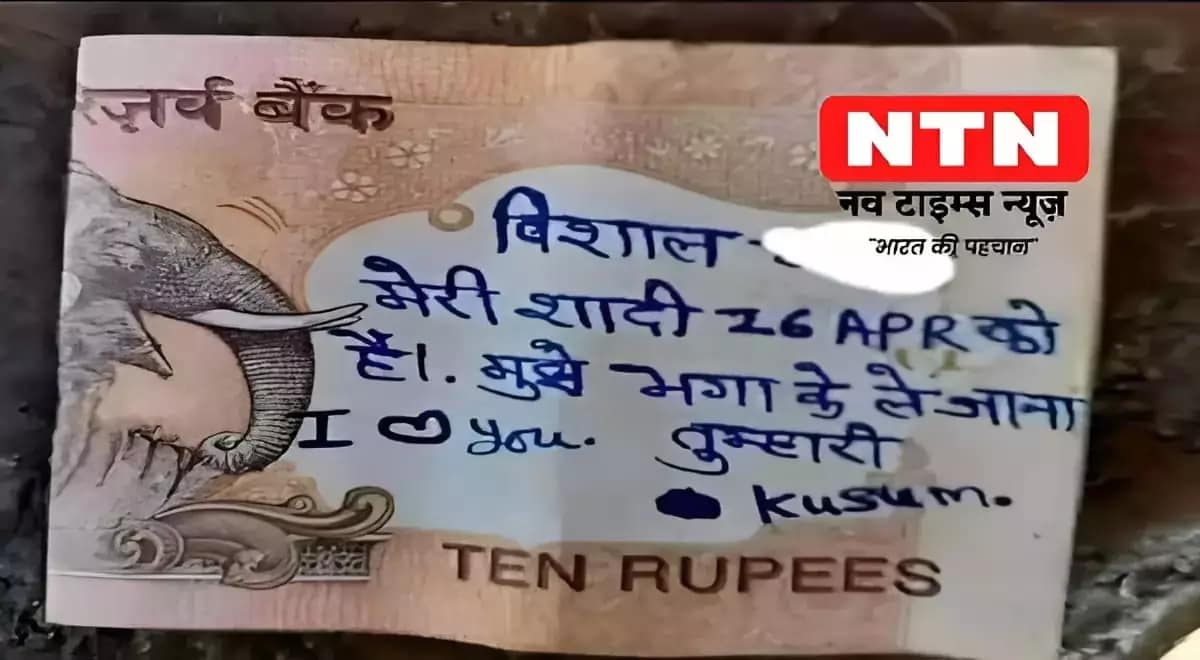 ज़र्व बैंक
NTN
नव टाइम्स न्यूज़
"भारत की पहचान"
विशाल -
मेरी शादी 26 APR को
है।. मुझे भगा के ले जाना
I ♡ you. तुम्हारी
Kusum.
TEN RUPEES